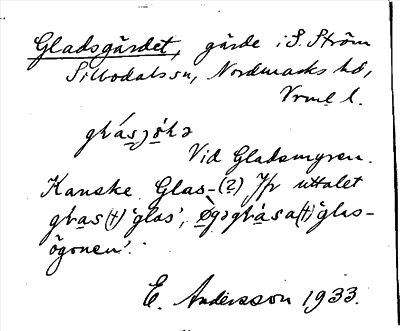 Gladsgärdet, gärde i S. Ström
Silbodals sn, Nordmarks hd,
Vrml l.
Vid Gladsmyren.
Kanske Glas-(?) Jfr uttalet
'glas', 'glas-
ögonen'.
E. Andersson 1933.